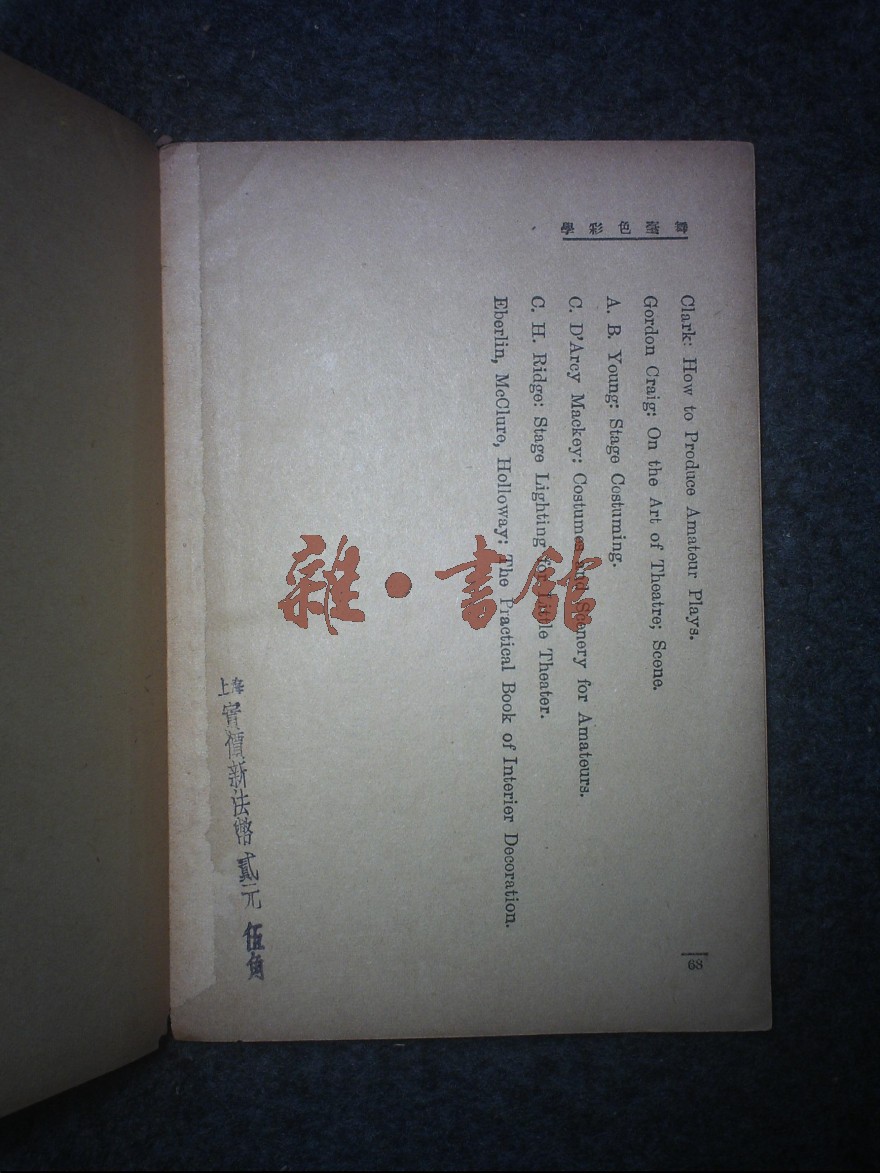 舞臺色彩學
Clark: How to Produce Amateur Plays.
Gordon Craig: On the Art of Theatre; Scene.
A. B. Young: Stage Costuming.
C. D'Arcy Mackey: Costumes and Scenery for Amateurs.
C. H. Ridge: Stage Lighting for Little Theater.
Eberlin, McClure, Holloway: The Practical Book of Interier Decoration.
68
上海實價新法幣貳元伍角
雜·書館